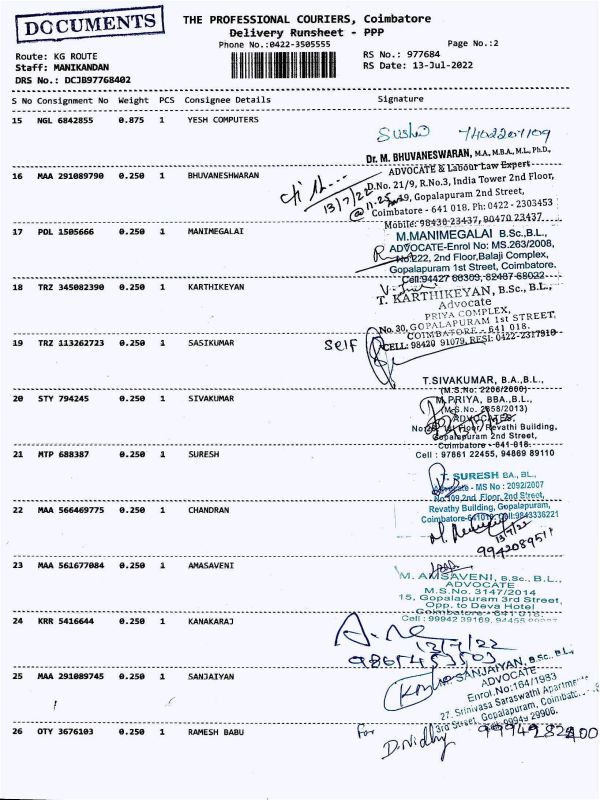 DOCUMENTS
THE PROFESSIONAL COURIERS, Coimbatore
Delivery Runsheet - PPP
Phone No.:0422-3505555
Page No.:2
Route: KG ROUTE
RS No.: 977684
Staff: MANIKANDAN
RS Date: 13-Jul-2022
DRS No.: DCJB97768402
S No Consignment No Weight PCS Consignee Details Signature
15 NGL 6842855 0.875 1 YESH COMPUTERS
Dr. M. BHUVANESWARAN, M.A., M.B.A., M.L., Ph.D.,
ADVOCATE & Labour Law Expert
16 MAA 291089790 0.250 1 BHUVANESHWARAN
D.No. 21/9, R.No.3, India Tower 2nd Floor,
13/7/22
Gopalapuram 2nd Street,
@11-25
Coimbatore - 641 018. Ph: 0422 - 2303453
Mobile: 98430 23437, 90470 23437
17 PDL 1505666 0.250 1 MANIMEGALAI
M.MANIMEGALAI B.Sc.,B.L.,
ADVOCATE-Enrol No: MS.263/2008,
No.222, 2nd Floor,Balaji Complex,
Gopalapuram 1st Street, Coimbatore.
18 TRZ 345082390 0.250 1 KARTHIKEYAN
T. KARTHIKEYAN, B.Sc., B.L.,
Advocate
PRIYA COMPLEX,
No. 30, GOPALAPURAM 1st STREET,
COIMBATORE - 641 018.
CELL: 98420 91079, RESI: 0422-2317910
19 TRZ 113262723 0.250 1 SASIKUMAR
self
T.SIVAKUMAR, B.A.,B.L.,
(M.S.No. 2206/2000)
20 STY 794245 0.250 1 SIVAKUMAR
M.PRIYA, BBA.,B.L.,
(M.S.No. 2858/2013)
ADVOCATES,
Floor, Revathi Building,
Gopalapuram 2nd Street,
Coimbatore - 641 018.
Cell : 97861 22455, 94869 89110
21 MTP 688387 0.250 1 SURESH
T. SURESH BA., BL.,
Advocate - MS No : 2092/2007
No.109,2nd Floor, 2nd Street,
Revathy Building, Gopalapuram,
Coimbatore-641018. Cell:9843336221
22 MAA 566469775 0.250 1 CHANDRAN
13/7/22
23 MAA 561677084 0.250 1 AMASAVENI
M. AMSAVENI, B.Sc., B.L.,
ADVOCATE
M.S. No. 3147/2014
15, Gopalapuram 3rd Street,
Opp. to Deva Hotel
Coimbatore - 641 018.
Cell : 99942 39169,
24 KRR 5416644 0.250 1 KANAKARAJ
13/7/22
25 MAA 291089745 0.250 1 SANJAIYAN
SANJAIYAN, B.Sc., B.L.,
ADVOCATE
Enrol.No:164/1983
27, Srinivasa Saraswathi Apartments
3rd Street, Gopalapuram,
26 OTY 3676103 0.250 1 RAMESH BABU
For
D.Vidhy